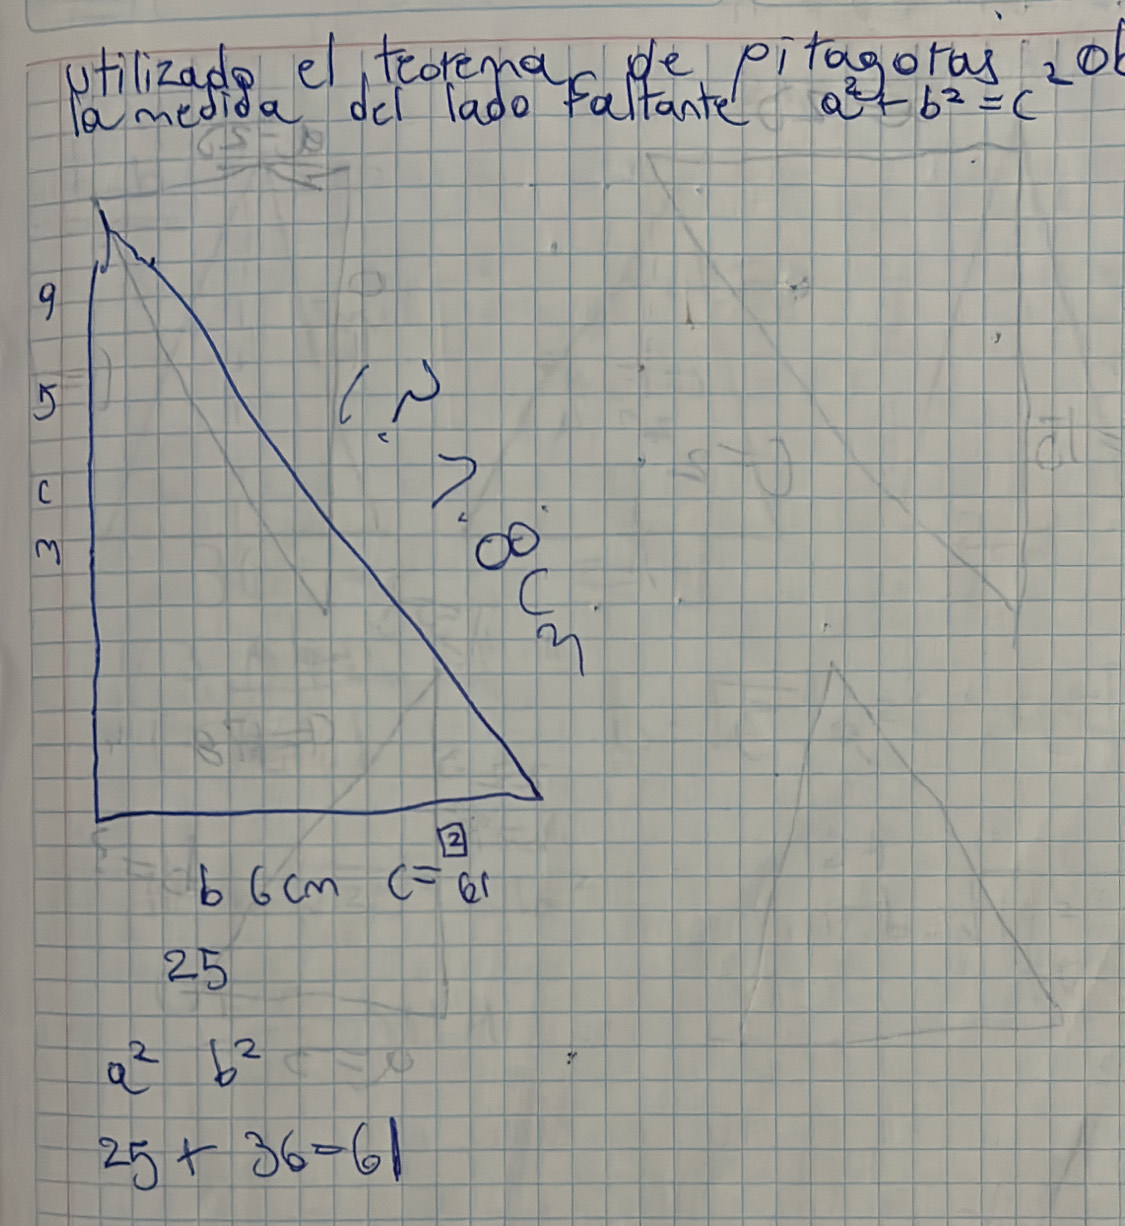 utilizado el teorema de pitagoras, ob
la medida del lado faltante a² + b² = c²
a
5
c
m
c
7.
8
c
m
b 6cm c = 2
61
25
a² b²
25 + 36 = 61